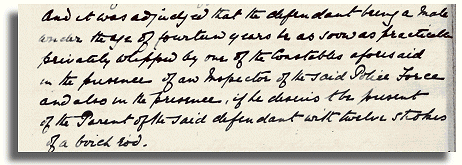 And it was adjudged that the defendant being a male
under the age of fourteen years be as soon as practicable
privately whipped by one of the Constables aforesaid
in the presence of an Inspector of the said Police Force
and also in the presence, if he desires to be present
of the Parent of the said defendant with twelve strokes
of a birch rod.